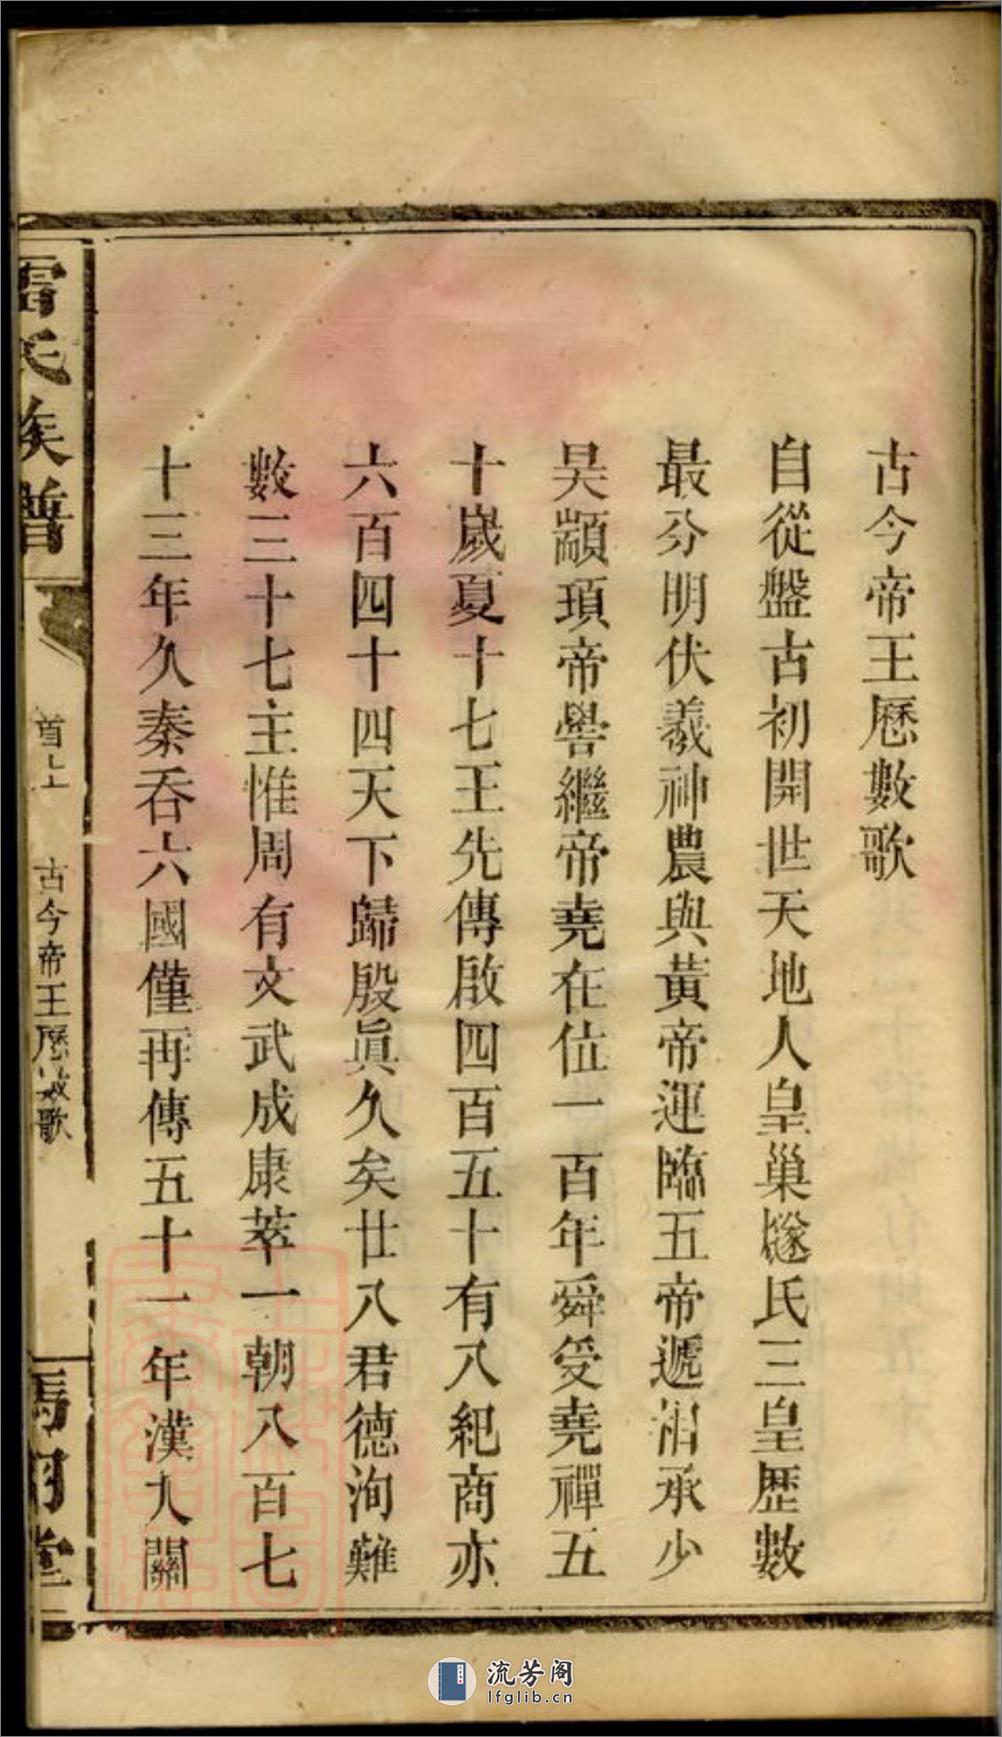 古今帝王歷數歌
自從盤古初開世天地人皇巢燧氏三皇歷數
最分明伏羲神農與黃帝運臨五帝遞相承少
昊顓頊帝嚳繼帝堯在位一百年舜受堯禪五
十歲夏十七王先傳啟四百五十有八紀商亦
六百四十四天下歸殷眞久矣廿八君德洵難
數三十七主惟周有文武成康萃一朝八百七
十三年久秦吞六國僅再傳五十一年漢入關
雷氏族譜
首上
古今帝王歷數歌
堂
流芳阁
lfglib.cn